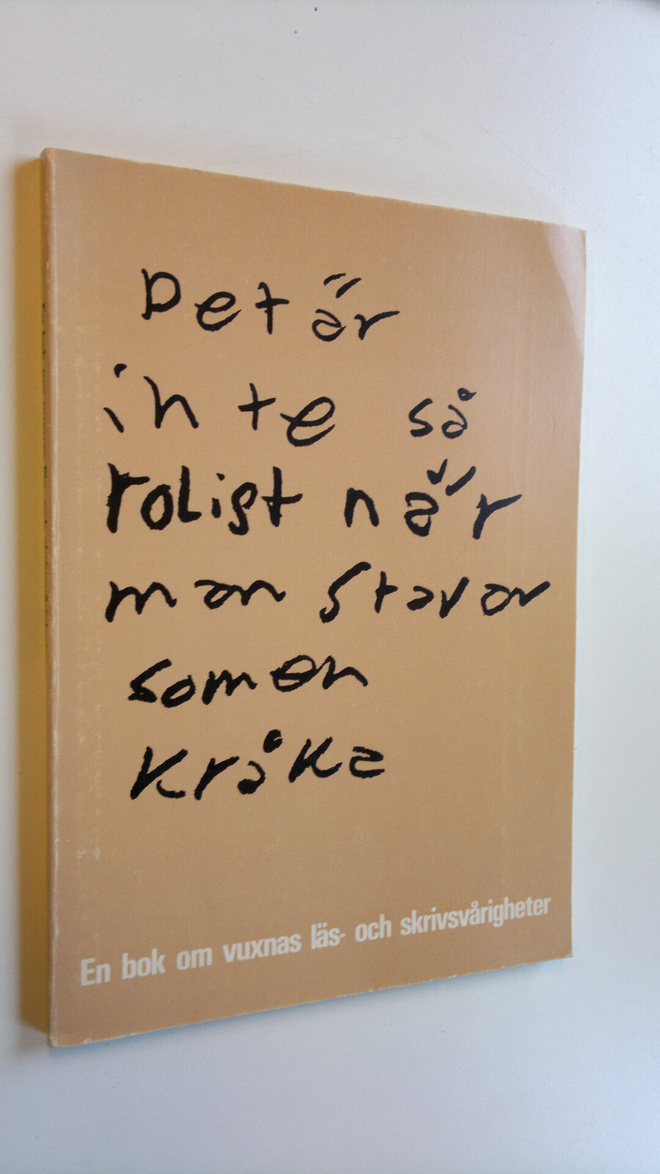 Det är
inte så
roligt när
man stavar
som en
kråka
En bok om vuxnas läs- och skrivsvårigheter